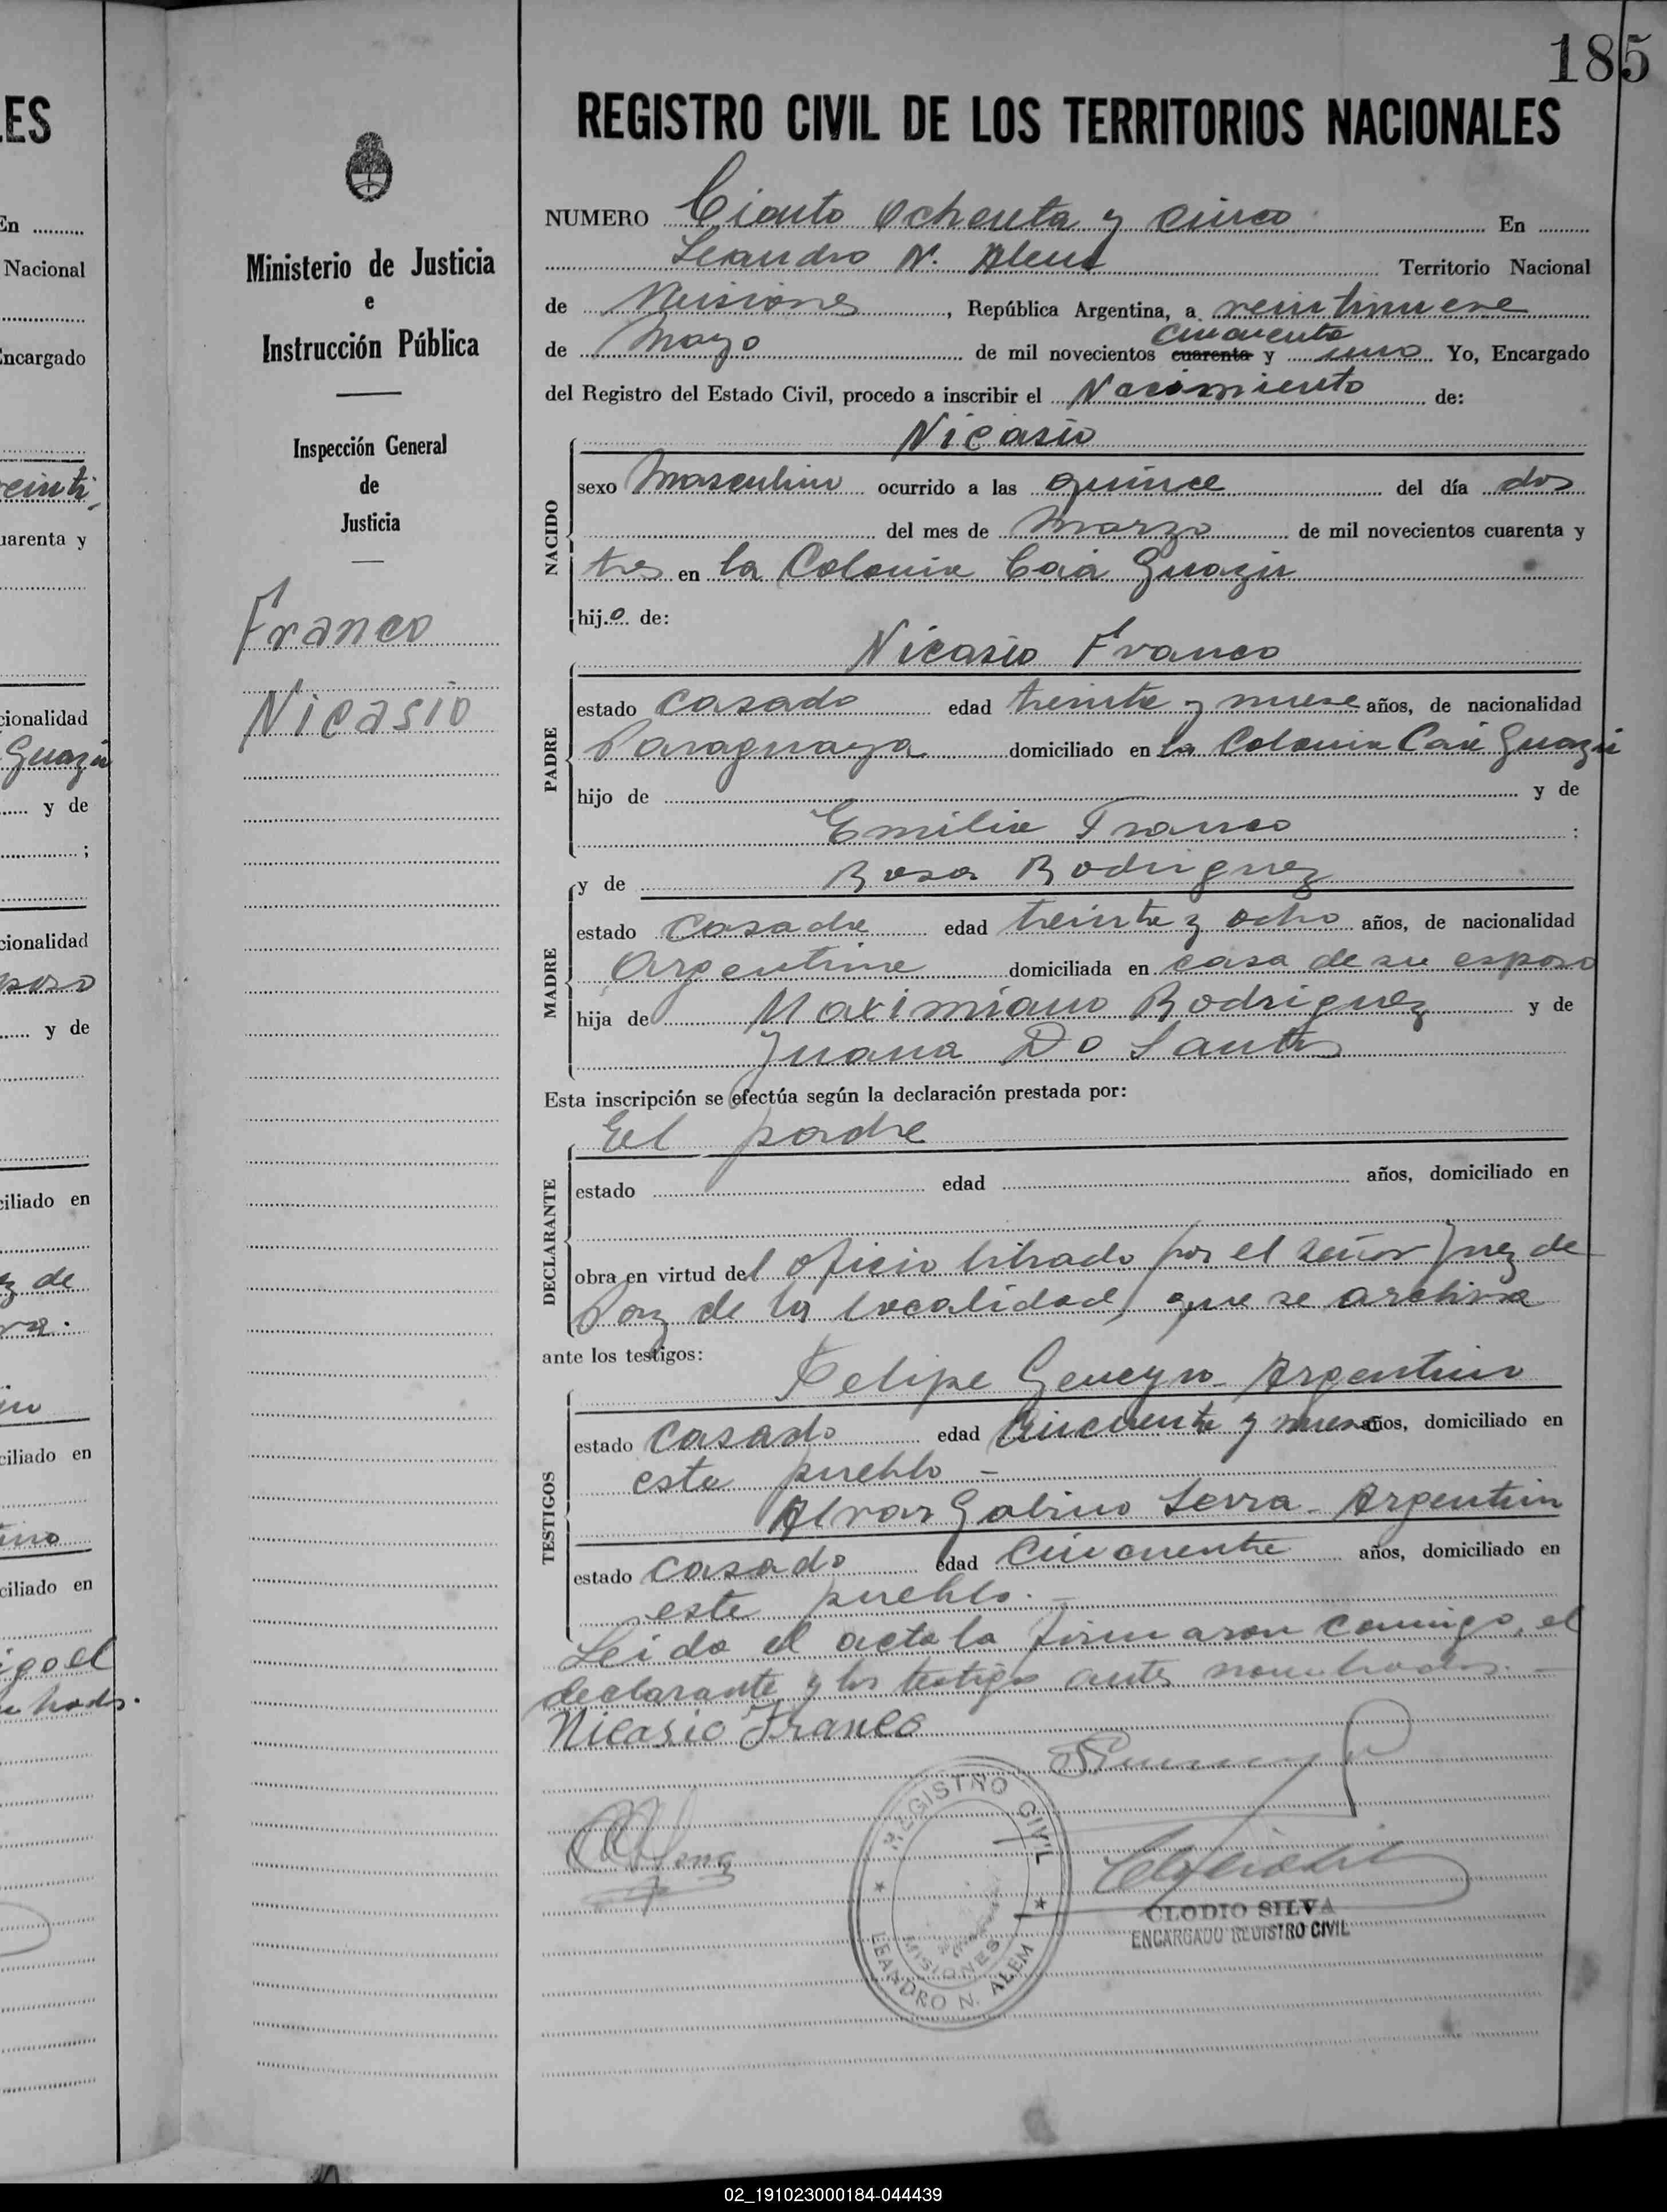 185
REGISTRO CIVIL DE LOS TERRITORIOS NACIONALES
NUMERO Ciento Ochenta y cinco En
Leandro N. Alem Territorio Nacional
de Misiones, República Argentina, a veintinueve
cincuenta
de Mayo de mil novecientos cuarenta y uno Yo, Encargado
del Registro del Estado Civil, procedo a inscribir el Nacimiento de:
Nicasio
NACIDO
sexo Masculino ocurrido a las quince del día dos
del mes de Marzo de mil novecientos cuarenta y
tres en la Colonia Caá Guazú
hijo de:
Nicasio Franco
PADRE
estado Casado edad treinta y nueve años, de nacionalidad
Paraguaya domiciliado en la Colonia Caá Guazú
hijo de y de
Emilia Franco ;
y de Rosa Rodriguez
MADRE
estado Casada edad treinta y ocho años, de nacionalidad
Argentina domiciliada en casa de su esposo
hija de Maximiano Rodriguez y de
Juana Do Santos
Esta inscripción se efectúa según la declaración prestada por:
El padre
DECLARANTE
estado edad años, domiciliado en
obra en virtud del oficio librado por el señor Juez de
Paz de la localidad, que se archiva
ante los testigos:
Felipe Geneyro Argentino
TESTIGOS
estado Casado edad Cincuenta y nueve años, domiciliado en
este pueblo -
Alvar Galino Serra - Argentin
estado Casado edad Cincuenta años, domiciliado en
este pueblo. -
Leida el acta la firmaron conmigo, el
declarante y los testigos antes nombrados. -
Nicasio Franco
REGISTRO CIVIL
MISIONES
LEANDRO N. ALEM
CLODIO SILVA
ENCARGADO REGISTRO CIVIL
Ministerio de Justicia
e
Instrucción Pública
Inspección General
de
Justicia
Franco
Nicasio
LES
En
Nacional
Encargado
veinti
uarenta y
cionalidad
Guazú
y de
;
cionalidad
esposo
y de
ciliado en
z de
va.
ciliado en
ciliado en
igo el
02_191023000184-044439